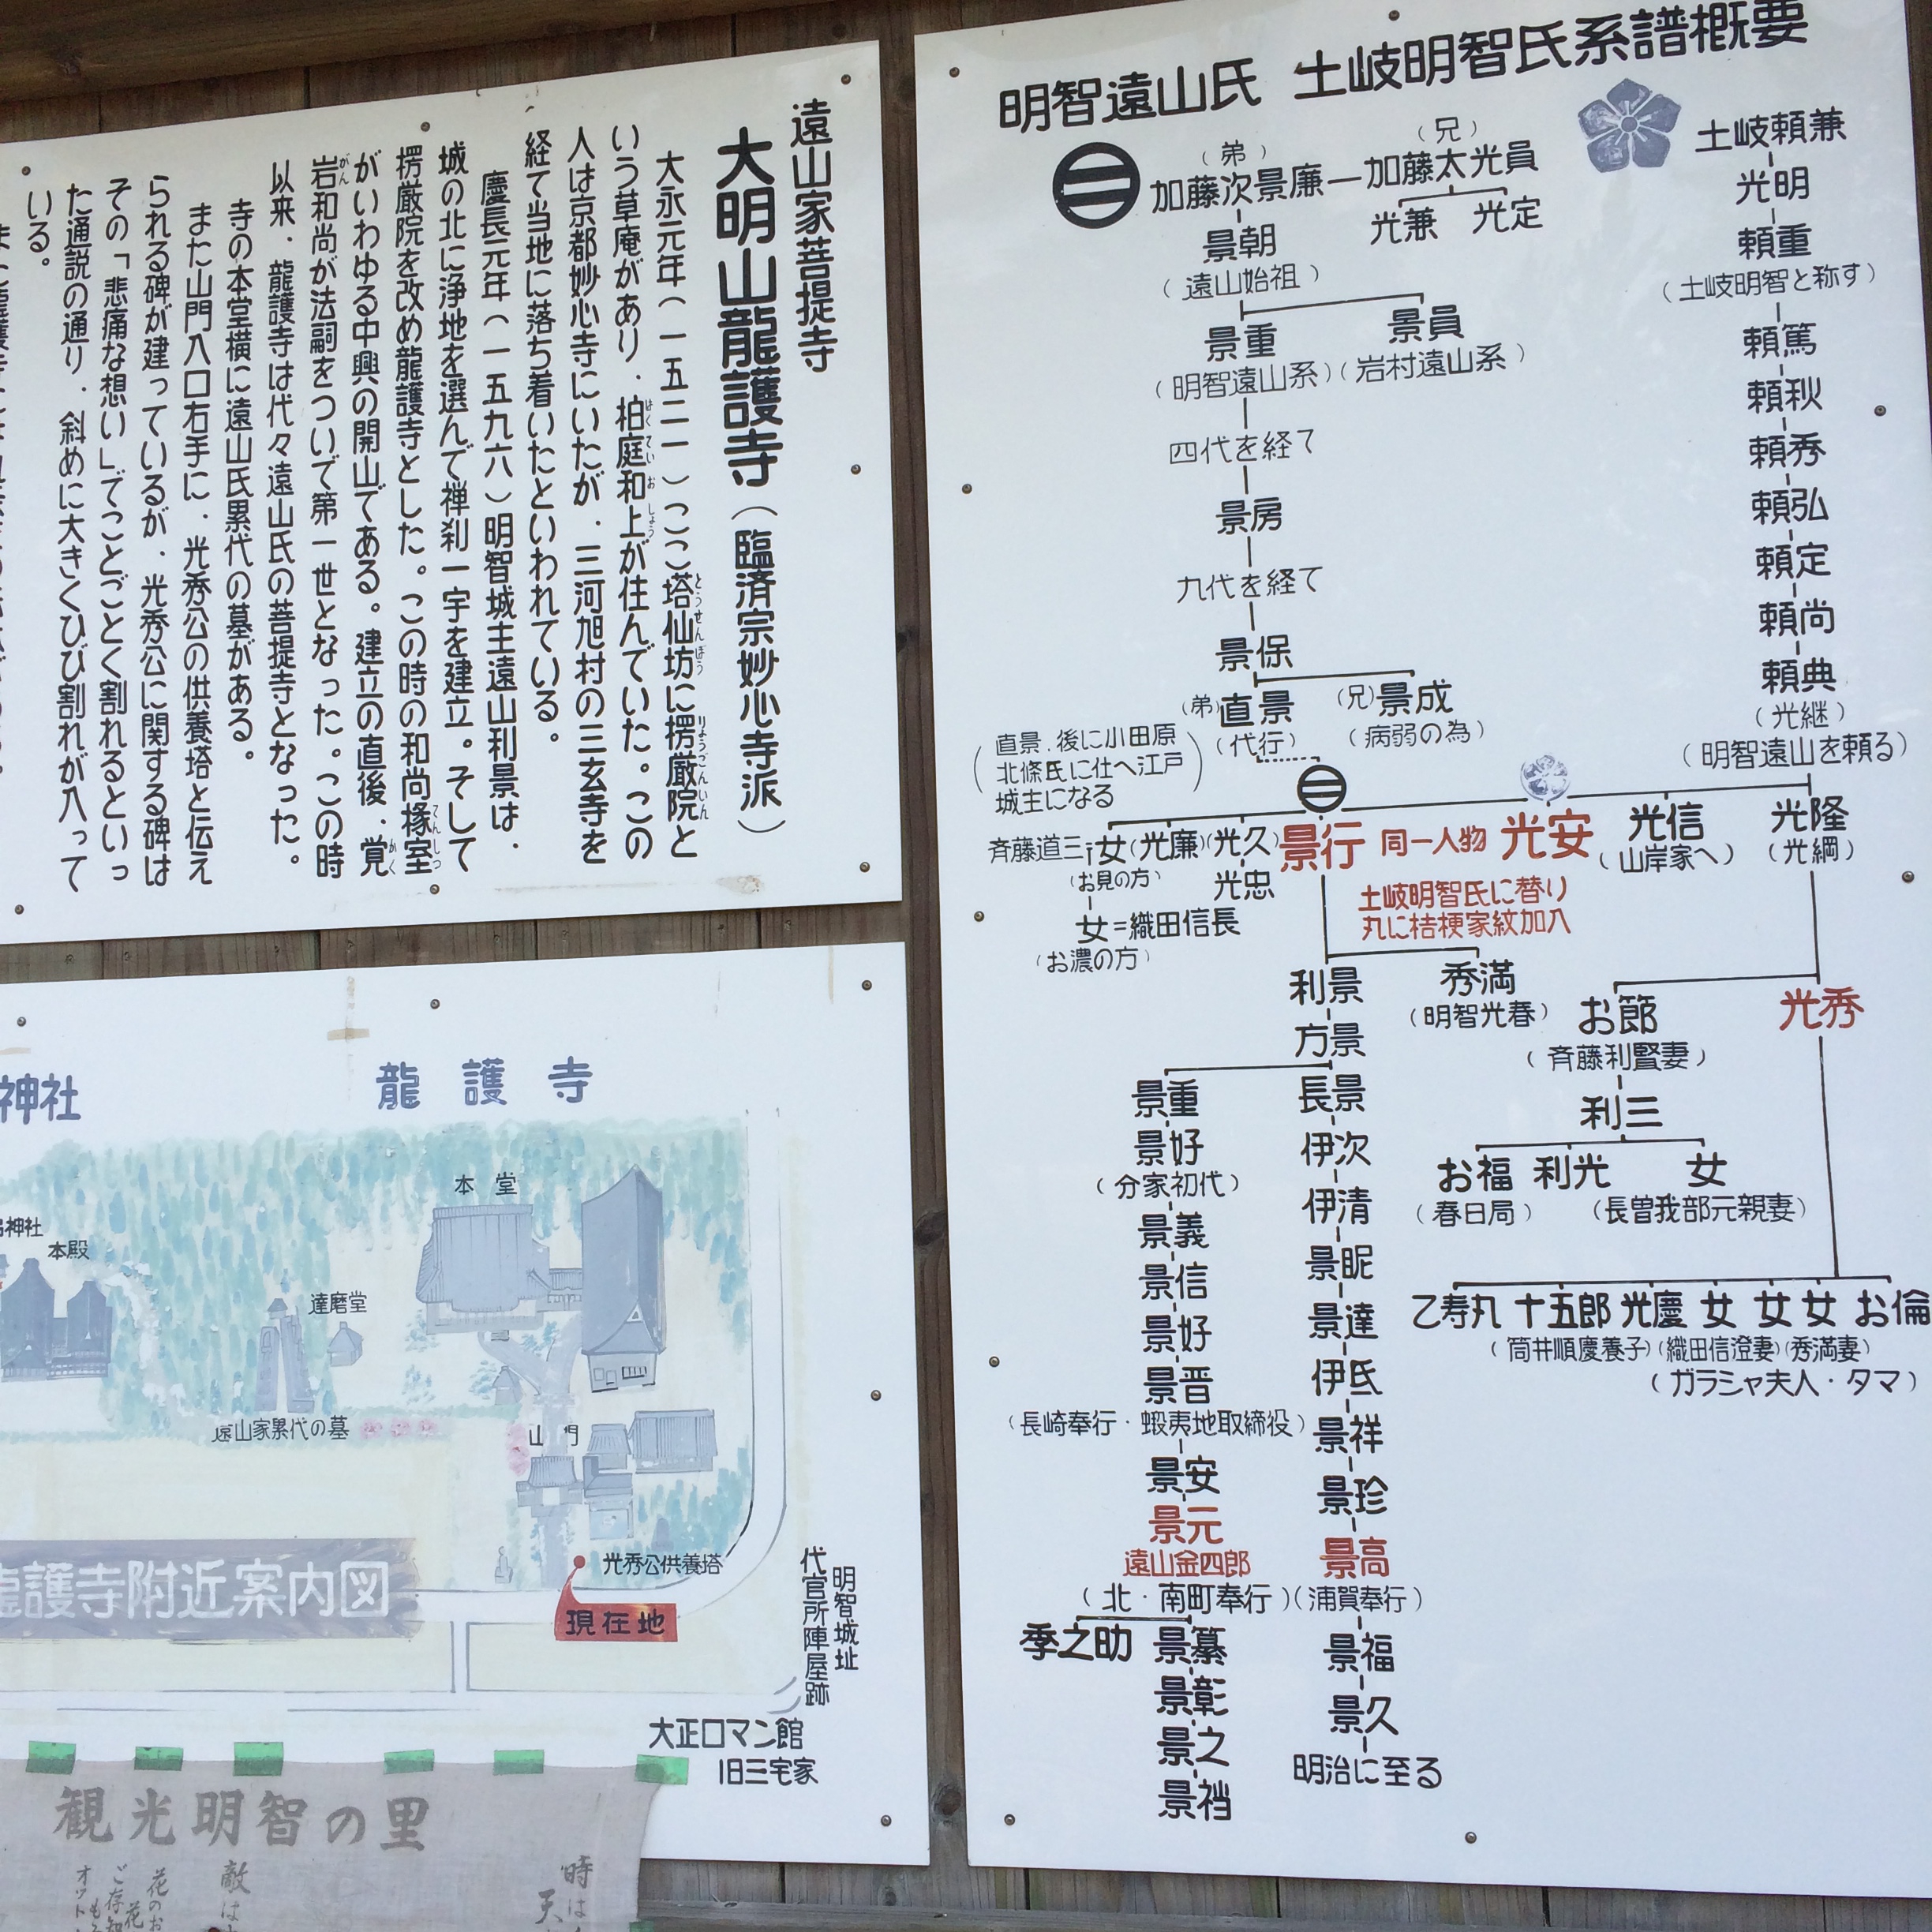 明智遠山氏 土岐明智氏系譜概要
土岐頼兼
光明
頼重
(土岐明智と称す)
頼篤
頼秋
頼秀
頼弘
頼定
頼尚
頼典
(光継)
(明智遠山を頼る)
(弟)
(兄)
加藤次景廉
加藤太光員
光兼 光定
景朝
(遠山始祖)
景重
景員
(明智遠山系)(岩村遠山系)
四代を経て
景房
九代を経て
景保
(弟)直景
(兄)景成
(代行)
(病弱の為)
直景、後に小田原
北條氏に仕へ江戸
城主になる
斉藤道三 女(光廉)(光久) 景行 同一人物 光安 光信 光隆
(お見の方)
光忠
(山岸家へ)
(光綱)
女=織田信長
(お濃の方)
土岐明智氏に替り
丸に桔梗家紋加入
利景
秀満
(明智光春)
お節
(斉藤利賢妻)
光秀
方景
利三
お福 利光 女
(春日局)
(長曽我部元親妻)
乙寿丸 十五郎 光慶 女 女 女 お倫
(筒井順慶養子)(織田信澄妻)(秀満妻)
(ガラシャ夫人・タマ)
景重
景好
(分家初代)
景義
景信
景好
景晋
(長崎奉行・蝦夷地取締役)
景安
景元
遠山金四郎
(北・南町奉行)
季之助 景纂
景彰
景之
景裆
長景
伊次
伊清
景昵
景達
伊氐
景祥
景珍
景高
(浦賀奉行)
景福
景久
明治に至る
遠山家菩提寺
大明山龍護寺(臨済宗妙心寺派)
大永元年(一五二一)ここ塔仙坊に楞厳院と
とうせんぼう りょうごんいん
いう草庵があり、柏庭和上が住んでいた。この
はくていおしょう
人は京都妙心寺にいたが、三河旭村の三玄寺を
経て当地に落ち着いたといわれている。
慶長元年(一五九六)明智城主遠山利景は、
城の北に浄地を選んで禅刹一宇を建立。そして
楞厳院を改め龍護寺とした。この時の和尚椽室
てんしつ
がいわゆる中興の開山である。建立の直後、覚
かく
岩和尚が法嗣をついで第一世となった。この時
がん
以来、龍護寺は代々遠山氏の菩提寺となった。
寺の本堂横に遠山氏累代の墓がある。
また山門入口右手に、光秀公の供養塔と伝え
られる碑が建っているが、光秀公に関する碑は
その「悲痛な想い」でことごとく割れるといっ
た通説の通り、斜めに大きくひび割れが入って
いる。
神社
龍護寺
本堂
神社
本殿
達磨堂
遠山家累代の墓
山門
光秀公供養塔
現在地
護寺附近案内図
明智城址
代官所陣屋跡
大正ロマン館
旧三宅家
観光明智の里
時は
天
敵は
花のお
花
ご存知
オット